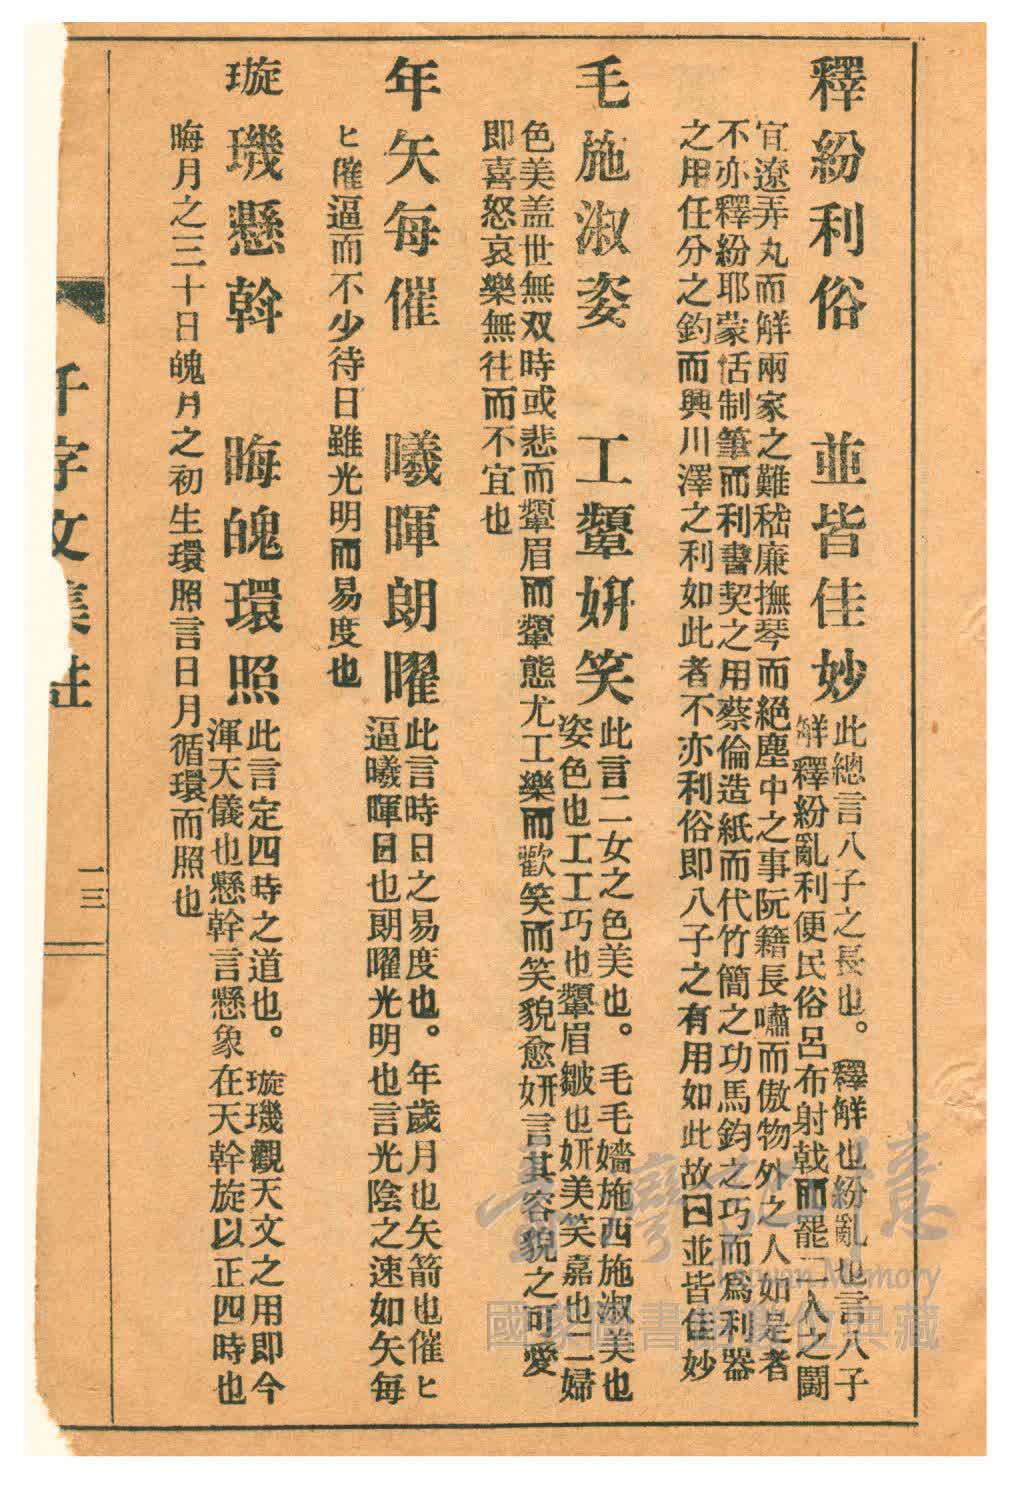 釋紛利俗　並皆佳妙
此總言八子之長也。釋解也紛亂也言八子
解釋紛亂利便民俗呂布射戟而罷二人之鬪
宜遼弄丸而解兩家之難嵇康撫琴而絕塵中之事阮籍長嘯而傲物外之人如是者
不亦釋紛耶蒙恬制筆而利書契之用蔡倫造紙而代竹簡之功馬鈞之巧而爲利器
之用任分之釣而興川澤之利如此者不亦利俗即八子之有用如此故曰並皆佳妙
毛施淑姿　工顰妍笑
此言二女之色美也。毛毛嬙施西施淑美也
姿色也工工巧也顰眉皺也妍美笑嘉也二婦
色美盖世無双時或悲而顰眉而顰態尤工樂而歡笑而笑貌愈妍言其容貌之可愛
即喜怒哀樂無往而不宜也
年矢每催　曦暉朗曜
此言時日之易度也。年歲月也矢箭也催ヒ
逼曦暉日也朗曜光明也言光陰之速如矢每
ヒ催逼而不少待日雖光明而易度也
璇璣懸斡　晦魄環照
此言定四時之道也。璇璣觀天文之用即今
渾天儀也懸幹言懸象在天幹旋以正四時也
晦月之三十日魄月之初生環照言日月循環而照也
千字文集註
一三
臺灣記憶
Taiwan Memory
國家圖書館數位典藏